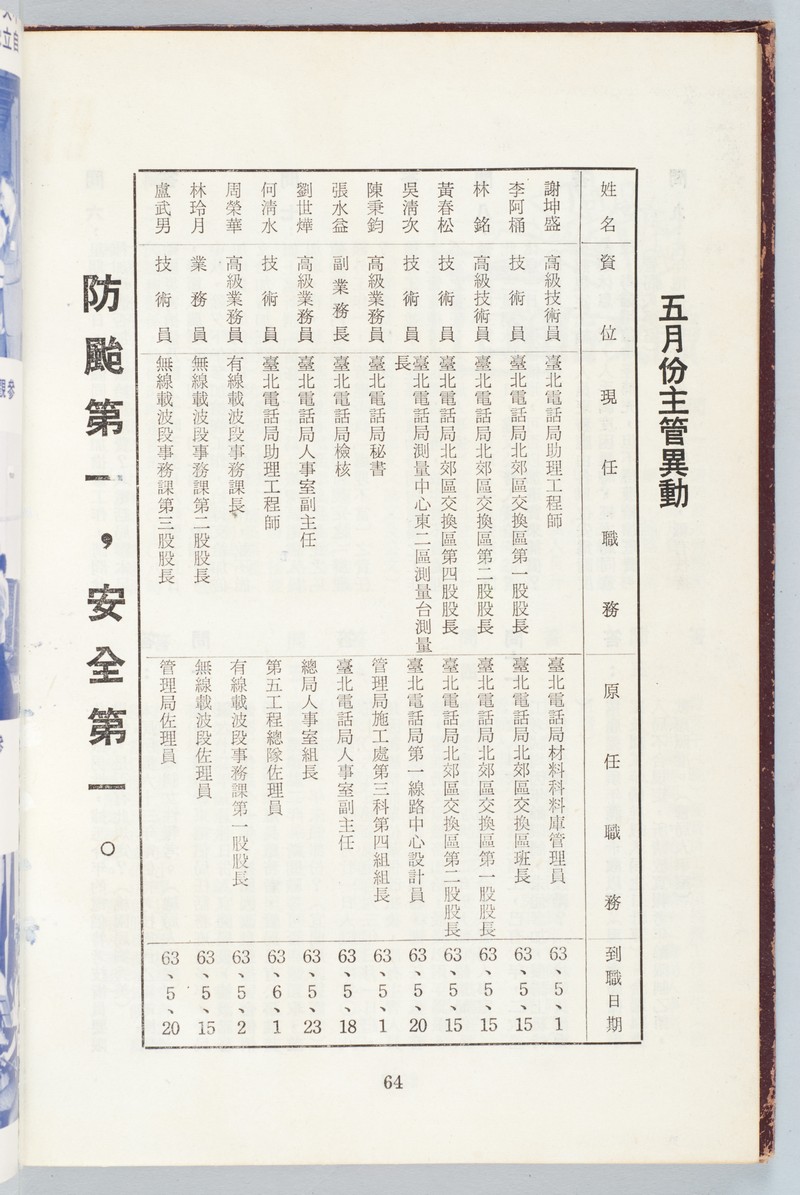 五月份主管異動
姓名 資位 現任職務 原任職務 到職日期
謝坤盛 高級技術員 臺北電話局助理工程師 臺北電話局材料科料庫管理員 63、5、1
李阿桶 技術員 臺北電話局北郊區交換區第一股股長 臺北電話局北郊區交換區班長 63、5、15
林銘 高級技術員 臺北電話局北郊區交換區第二股股長 臺北電話局北郊區交換區第一股股長 63、5、15
黃春松 技術員 臺北電話局北郊區交換區第四股股長 臺北電話局北郊區交換區第二股股長 63、5、15
吳清次 技術員 臺北電話局測量中心東二區測量台測量長 臺北電話局第一線路中心設計員 63、5、20
陳秉鈞 高級業務員 臺北電話局秘書 管理局施工處第三科第四組組長 63、5、1
張水益 副業務長 臺北電話局檢核 臺北電話局人事室副主任 63、5、18
劉世燁 高級業務員 臺北電話局人事室副主任 總局人事室組長 63、5、23
何清水 技術員 臺北電話局助理工程師 第五工程總隊佐理員 63、6、1
周榮華 高級業務員 有線載波段事務課長 有線載波段事務課第一股股長 63、5、2
林玲月 業務員 無線載波段事務課第二股股長 無線載波段佐理員 63、5、15
盧武男 技術員 無線載波段事務課第三股股長 管理局佐理員 63、5、20
防颱第一，安全第一。
64